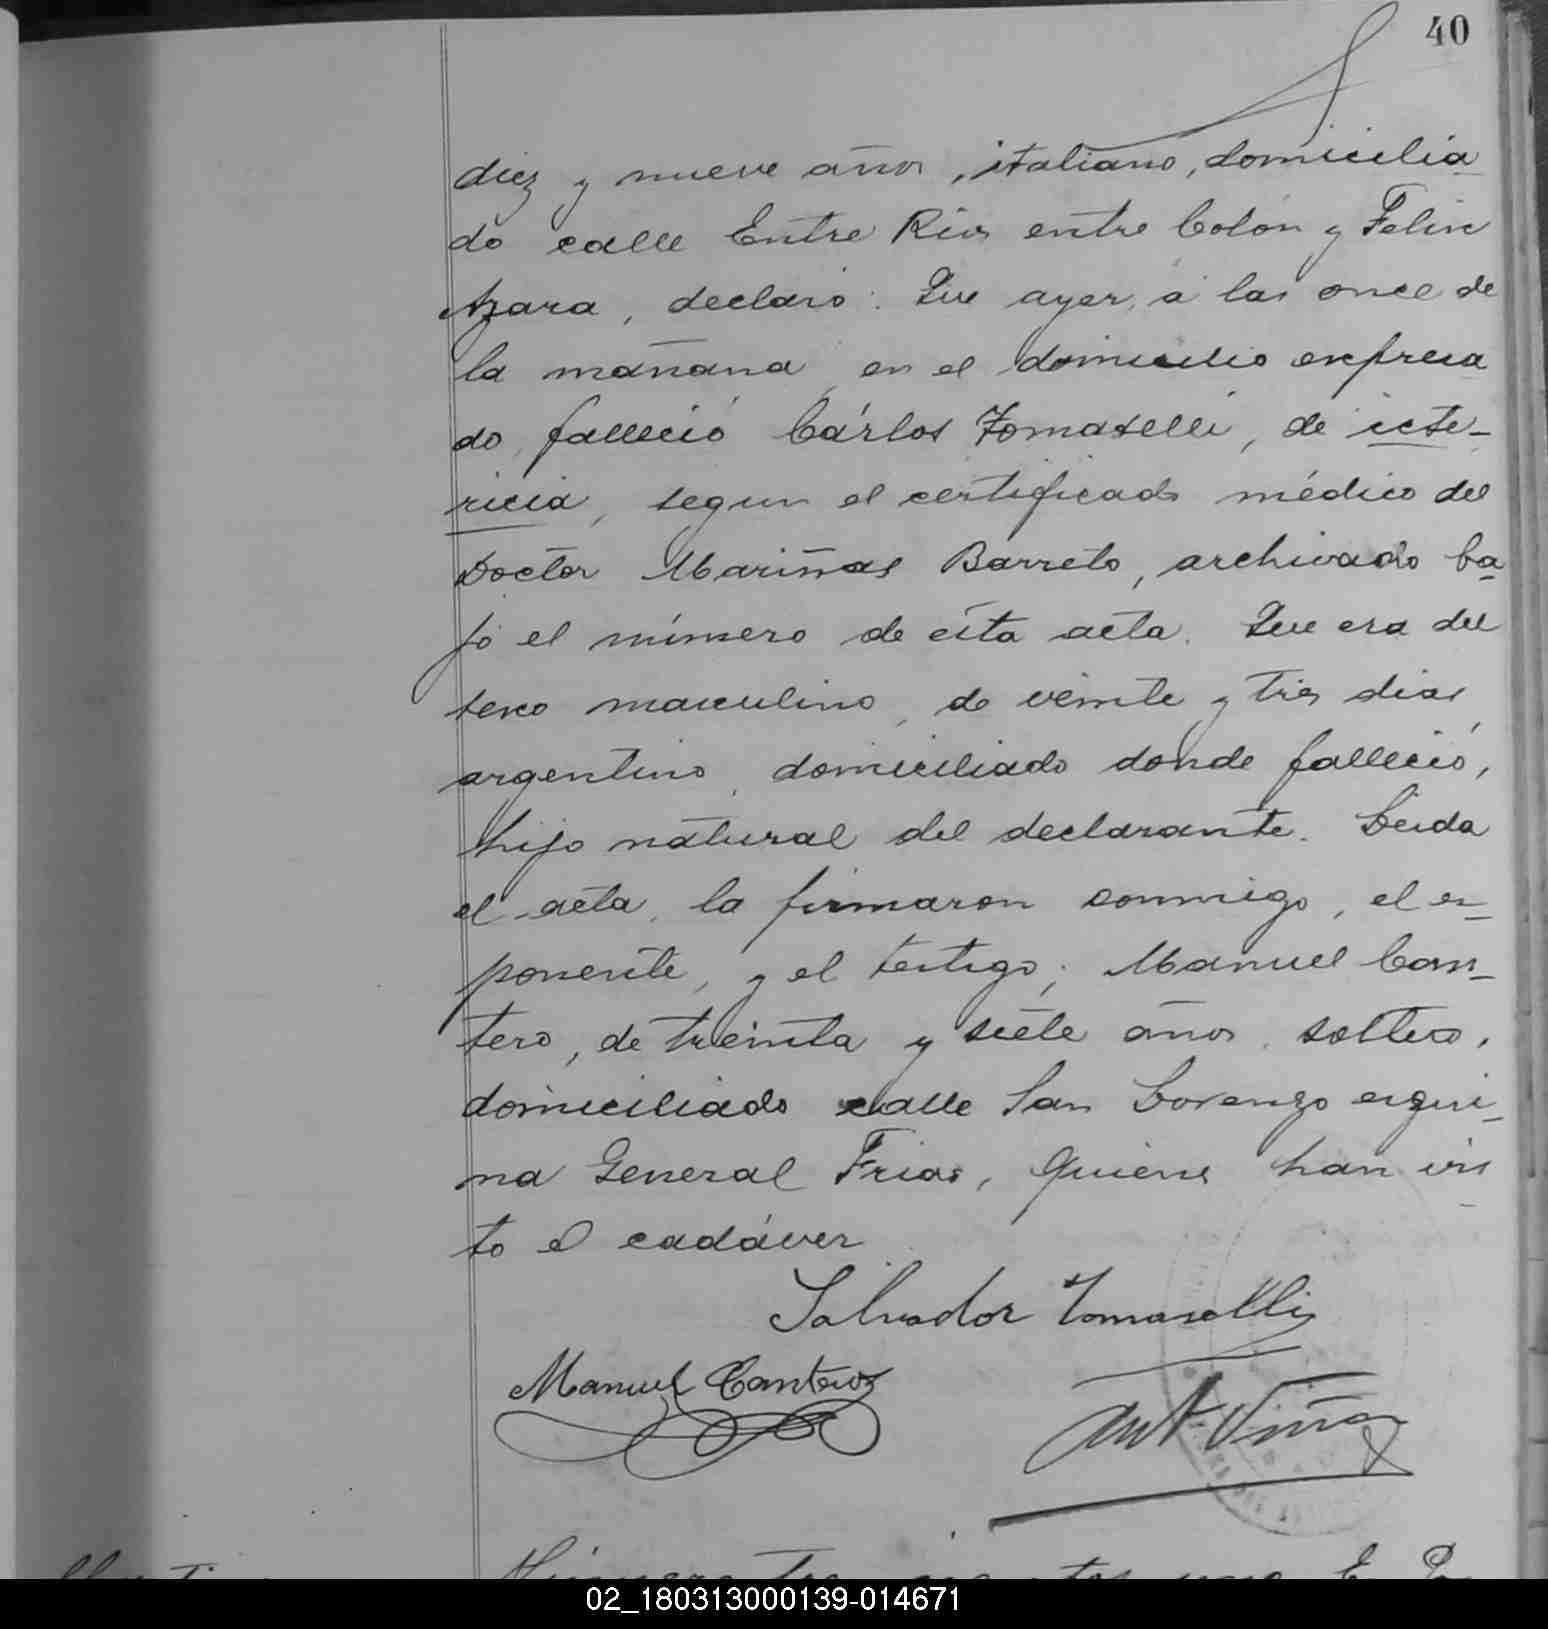 40
diez y nueve años, italiano, domicilia
do calle Entre Rios entre Colón y Felix
Azara, declaró: Que ayer, á las once de
la mañana, en el domicilio expresa
do, falleció Cárlos Tomaselli, de icte-
ricia, segun el certificado médico del
Doctor Mariñas Barreto, archivado ba
jo el número de esta acta. Que era del
sexo masculino, de veinte y tres dias,
argentino, domiciliado donde falleció,
hijo natural del declarante. Leida
el acta, la firmaron conmigo, el ex-
ponente, y el testigo; Manuel Can-
tero, de treinta y siete años, soltero,
domiciliado calle San Lorenzo esqui-
na General Frias, quienes han vis
to el cadáver
Salvador Tomaselli
Manuel Canteros
Ant. Viña
02_180313000139-014671